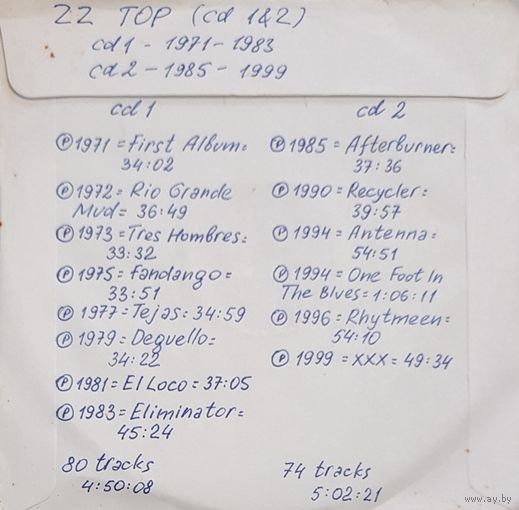 ZZ TOP (cd 1&2)
cd 1 - 1971 - 1983
cd 2 - 1985 - 1999
cd 1
Ⓟ 1971 = First Album =
34:02
Ⓟ 1972 = Rio Grande
Mud = 36:49
Ⓟ 1973 = Tres Hombres =
33:32
Ⓟ 1975 = Fandango =
33:51
Ⓟ 1977 = Tejas = 34:59
Ⓟ 1979 = Deguello =
34:22
Ⓟ 1981 = El Loco = 37:05
Ⓟ 1983 = Eliminator =
45:24
80 tracks
4:50:08
cd 2
Ⓟ 1985 = Afterburner =
37:36
Ⓟ 1990 = Recycler =
39:57
Ⓟ 1994 = Antenna =
54:51
Ⓟ 1994 = One Foot In
The Blves = 1:06:11
Ⓟ 1996 = Rhytmeen =
54:10
Ⓟ 1999 = XXX = 49:34
74 tracks
5:02:21
www.ay.by